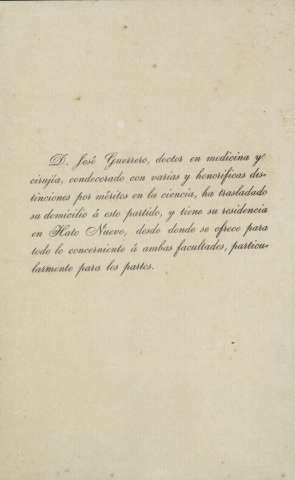 D. José Guerrero, doctor en medicina y
cirujía, condecorado con varias y honoríficas dis-
tinciones por méritos en la ciencia, ha trasladado
su domicilio á este partido, y tiene su residencia
en Hato Nuevo, desde donde se ofrece para
todo lo concerniente á ambas facultades, particu-
larmente para los partos.